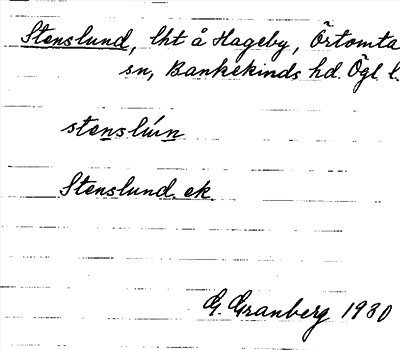 Stenslund, lht å Hageby, Örtomta
sn, Bankekinds hd. Ögl l.
stenslún
Stenslund. ek.
G. Granberg 1930